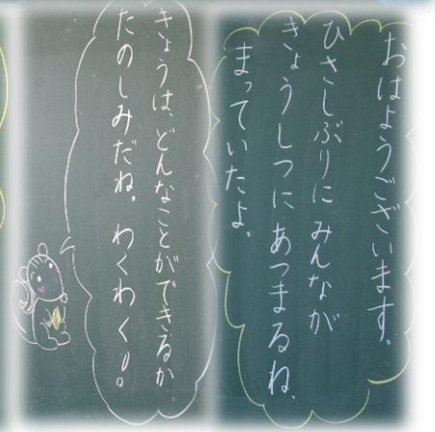 おはようございます。
ひさしぶりに みんなが
きょうしつに あつまるね、
まっていたよ。
きょうは、どんなことができるか、
たのしみだね。わくわく!!。